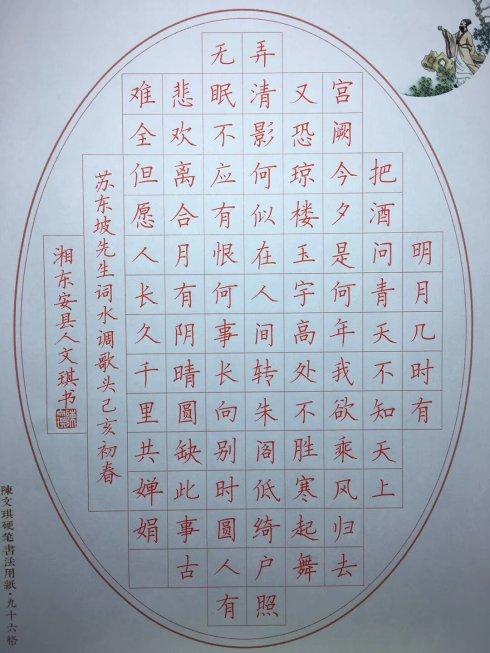 明月几时有
把酒问青天不知天上
宫阙今夕是何年我欲乘风归去
又恐琼楼玉宇高处不胜寒起舞
弄清影何似在人间转朱阁低绮户照
无眠不应有恨何事长向别时圆人有
悲欢离合月有阴晴圆缺此事古
难全但愿人长久千里共婵娟
苏东坡先生词水调歌头己亥初春
湘东安县人文琪书
陳文琪硬笔書法用紙·九十六格